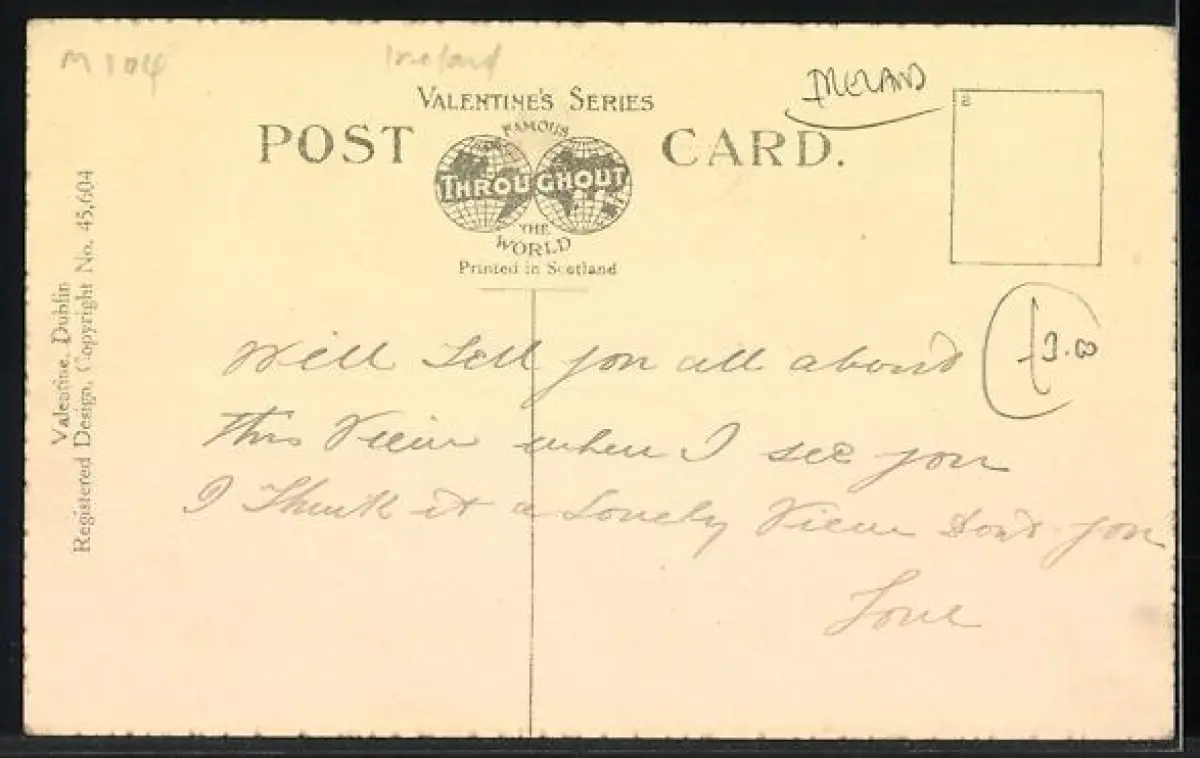 M 104
Ireland
IRELAND
VALENTINE'S SERIES
POST CARD.
FAMOUS
THROUGHOUT
THE
WORLD
Printed in Scotland
Valentine, Dublin
Registered Design, Copyright No. 45,604
£3.00
Will tell you all about
this View when I see you
I Think it a Lovely View Don't you
Love